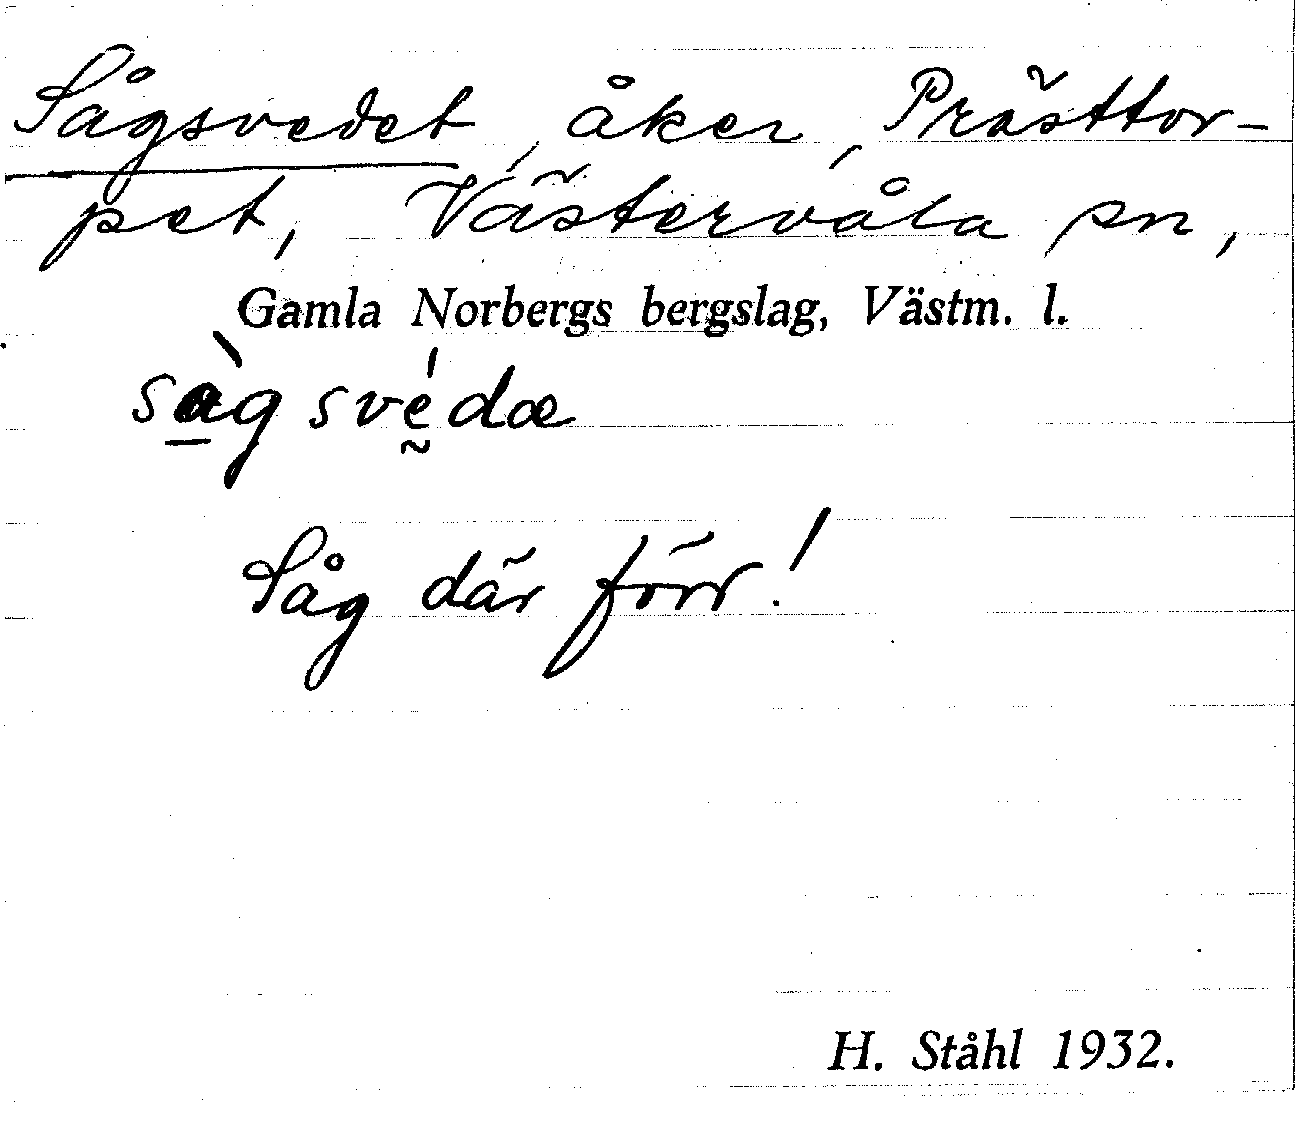 Sågsvedet, åker, Prästtor-
pet, Västervåla sn,
Gamla Norbergs bergslag, Västm. l.
sàgsvédæ
Såg där förr!
H. Ståhl 1932.